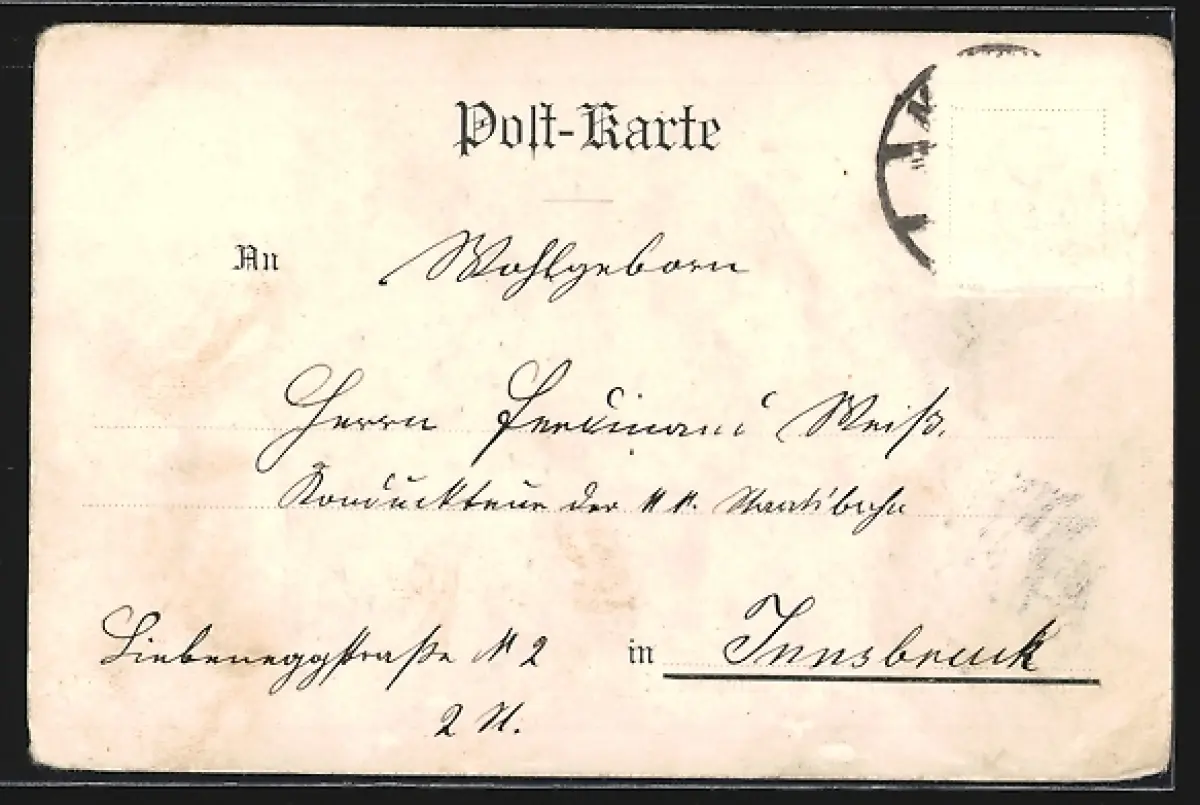 Post-Karte
An Wohlgeborn
Herrn Ferdinand Weiß.
Konduckteur der k k. Staatsbahn
Liebeneggstraße N 2 in Innsbruck
2 St.